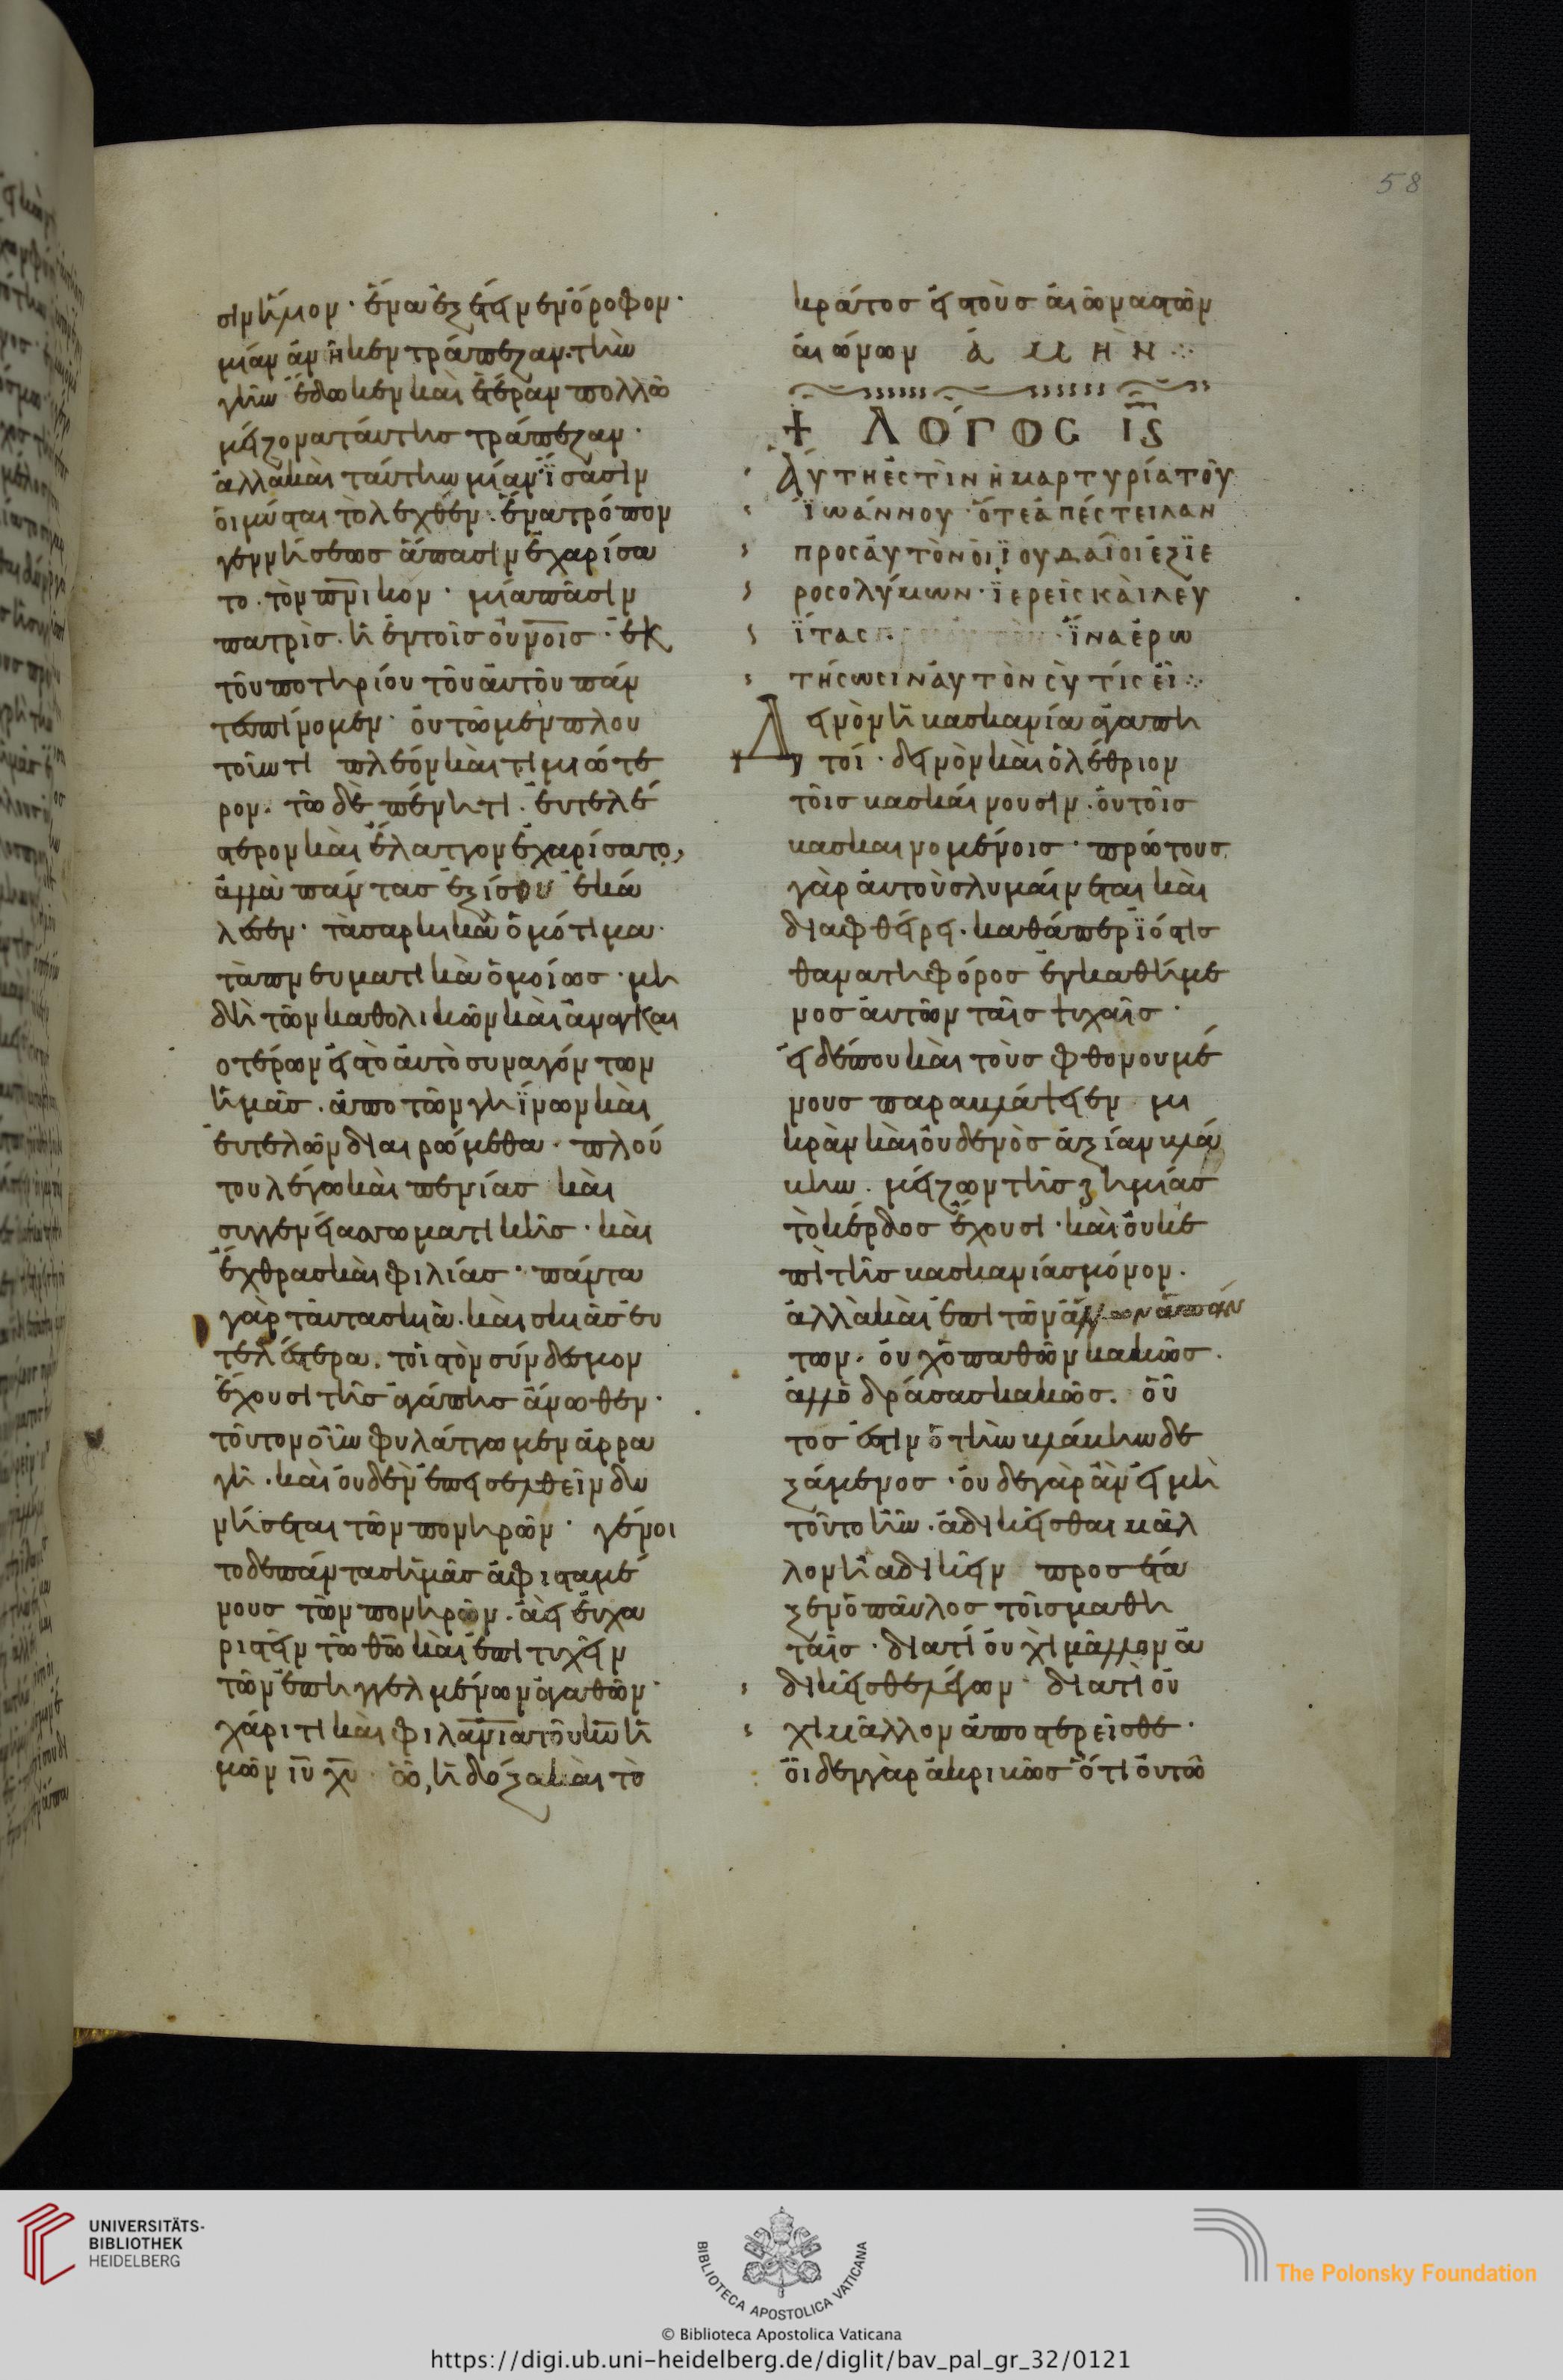 58
σὶν ἥλιον· ἕνα ἐξέτεινεν ὄροφον·
μίαν ἀνῆκεν τράπεζαν· τὴν
γῆν ἔδωκεν καὶ ἑτέραν πολλῶ
μείζονα ταύτης τράπεζαν·
ἀλλὰ καὶ ταύτην μίαν ἴσασιν
οἱ μύσται τὸ λεχθέν· ἕνα τρόπον
γεννήσεως ἅπασιν ἐχαρίσα
το· τὸν πνικον· μία πᾶσιν
πατρὶς· ἡ ἐν τοῖς οὐνοις· ἐκ
τοῦ ποτηρίου τοῦ αὐτοῦ πάν
τες πίνομεν· οὐ τῶ μὲν πλου
τοῦντι πλέον καὶ τιμιώτε
ρον· τῶ δὲ πένητι· εὐτελέ
στερον καὶ ἔλαττον ἐχαρίσατο,
ἀλλὰ πάντας ἐξίσου ἐκά
λεσεν· τὰ σαρκικὰ ὁμότιμα·
τὰ πνευματικὰ ὁμοίως· μὴ
δὴ τῶν καθολικῶν καὶ ἀναγκαι
οτέρων εἰς τὸ αὐτὸ συναγόντων
ἡμᾶς· ἀπὸ τῶν γηΐνων καὶ
εὐτελῶν διαιρώμεθα· πλού
του λέγω καὶ πενίας καὶ
συγγενείας σωματικῆς· καὶ
ἔχθρας καὶ φιλίας· πάντα
γὰρ ταῦτα σκιὰ· καὶ σκιᾶς εὐ
τελέστερα· τοῖς τὸν σύνδεσμον
ἔχουσι τῆς ἀγάπης ἄνωθεν·
τοῦτον οὖν φυλάττωμεν ἀρρα
γῆ· καὶ οὐδὲν ἐπεισελθεῖν δυ
νήσεται τῶν πονηρῶν· γένοι
το δὲ πάντας ἡμᾶς ἀφισταμέ
νους τῶν πονηρῶν· ἀεὶ εὐχα
ριστεῖν τῶ θῶ καὶ ἐπιτυχεῖν
τῶν ἐπηγγελμένων ἀγαθῶν·
χάριτι καὶ φιλανια τοῦ κυ ἡ
μῶν ιυ χυ ὧ, ἡ δόξα καὶ τὸ
κράτος εἰς τοὺς αἰῶνας τῶν
αἰώνων ἀμήν·
+ ΛΌΓΟC ΙϚ
Αὕτη ἐστὶν ἡ μαρτυρία τοῦ
ἰωάννου ὅτε ἀπέστειλαν
πρὸς αὐτὸν οἱ ἰουδαῖοι ἐξ ἱε
ροσολύμων· ἱερεῖς καὶ λευ
ΐτας ἵνα ἐρω
τήσωσιν αὐτὸν σὺ τίς εἶ·
Δεινὸν ἡ βασκανία ἀγαπη
τοί· δεινὸν καὶ ὀλέθριον
τοῖς βασκαίνουσιν· οὐ τοῖς
βασκαινομένοις· πρώτους
γὰρ αὐτοὺς λυμαίνεται καὶ
διαφθείρει· καθάπερ ἰός τις
θανατηφόρος ἐγκαθήμε
νος αὐτῶν ταῖς ψυχαῖς·
εἰ δέ που καὶ τοὺς φθονουμέ
νους παραβλάψειεν μι
κρὰν καὶ οὐδενὸς ἀξίαν βλά
βην· μείζων τῆς ζημίας
τὸ κέρδος ἔχουσι· καὶ οὐκ ἐ
πὶ τῆς βασκανίας μόνον·
ἀλλὰ καὶ ἐπὶ τῶν ἄλλων ἁπάν
των· οὐχ ὁ παθὼν κακῶς·
ἀλλ' ὁ δράσας κακῶς· οὗ
τος ἐστὶν ὁ τὴν βλάβην δε
ξάμενος· οὐδὲ γὰρ ἂν εἰ μὴ
τοῦτο ἦν· ἀδικεῖσθαι μᾶλ
λον ἢ ἀδικεῖν προσέτα
ξεν ὁ παῦλος τοῖς μαθη
ταῖς· διατί οὐχὶ μᾶλλον ἀ
δικεῖσθε λέγων· διατὶ οὐ
χὶ μᾶλλον ἀποστερεῖσθε·
οἶδεν γὰρ ἀκριβῶς ὅτι οὐ τῶ
UNIVERSITÄTS-
BIBLIOTHEK
HEIDELBERG
BIBLIOTECA APOSTOLICA VATICANA
The Polonsky Foundation
© Biblioteca Apostolica Vaticana
https://digi.ub.uni-heidelberg.de/diglit/bav_pal_gr_32/0121